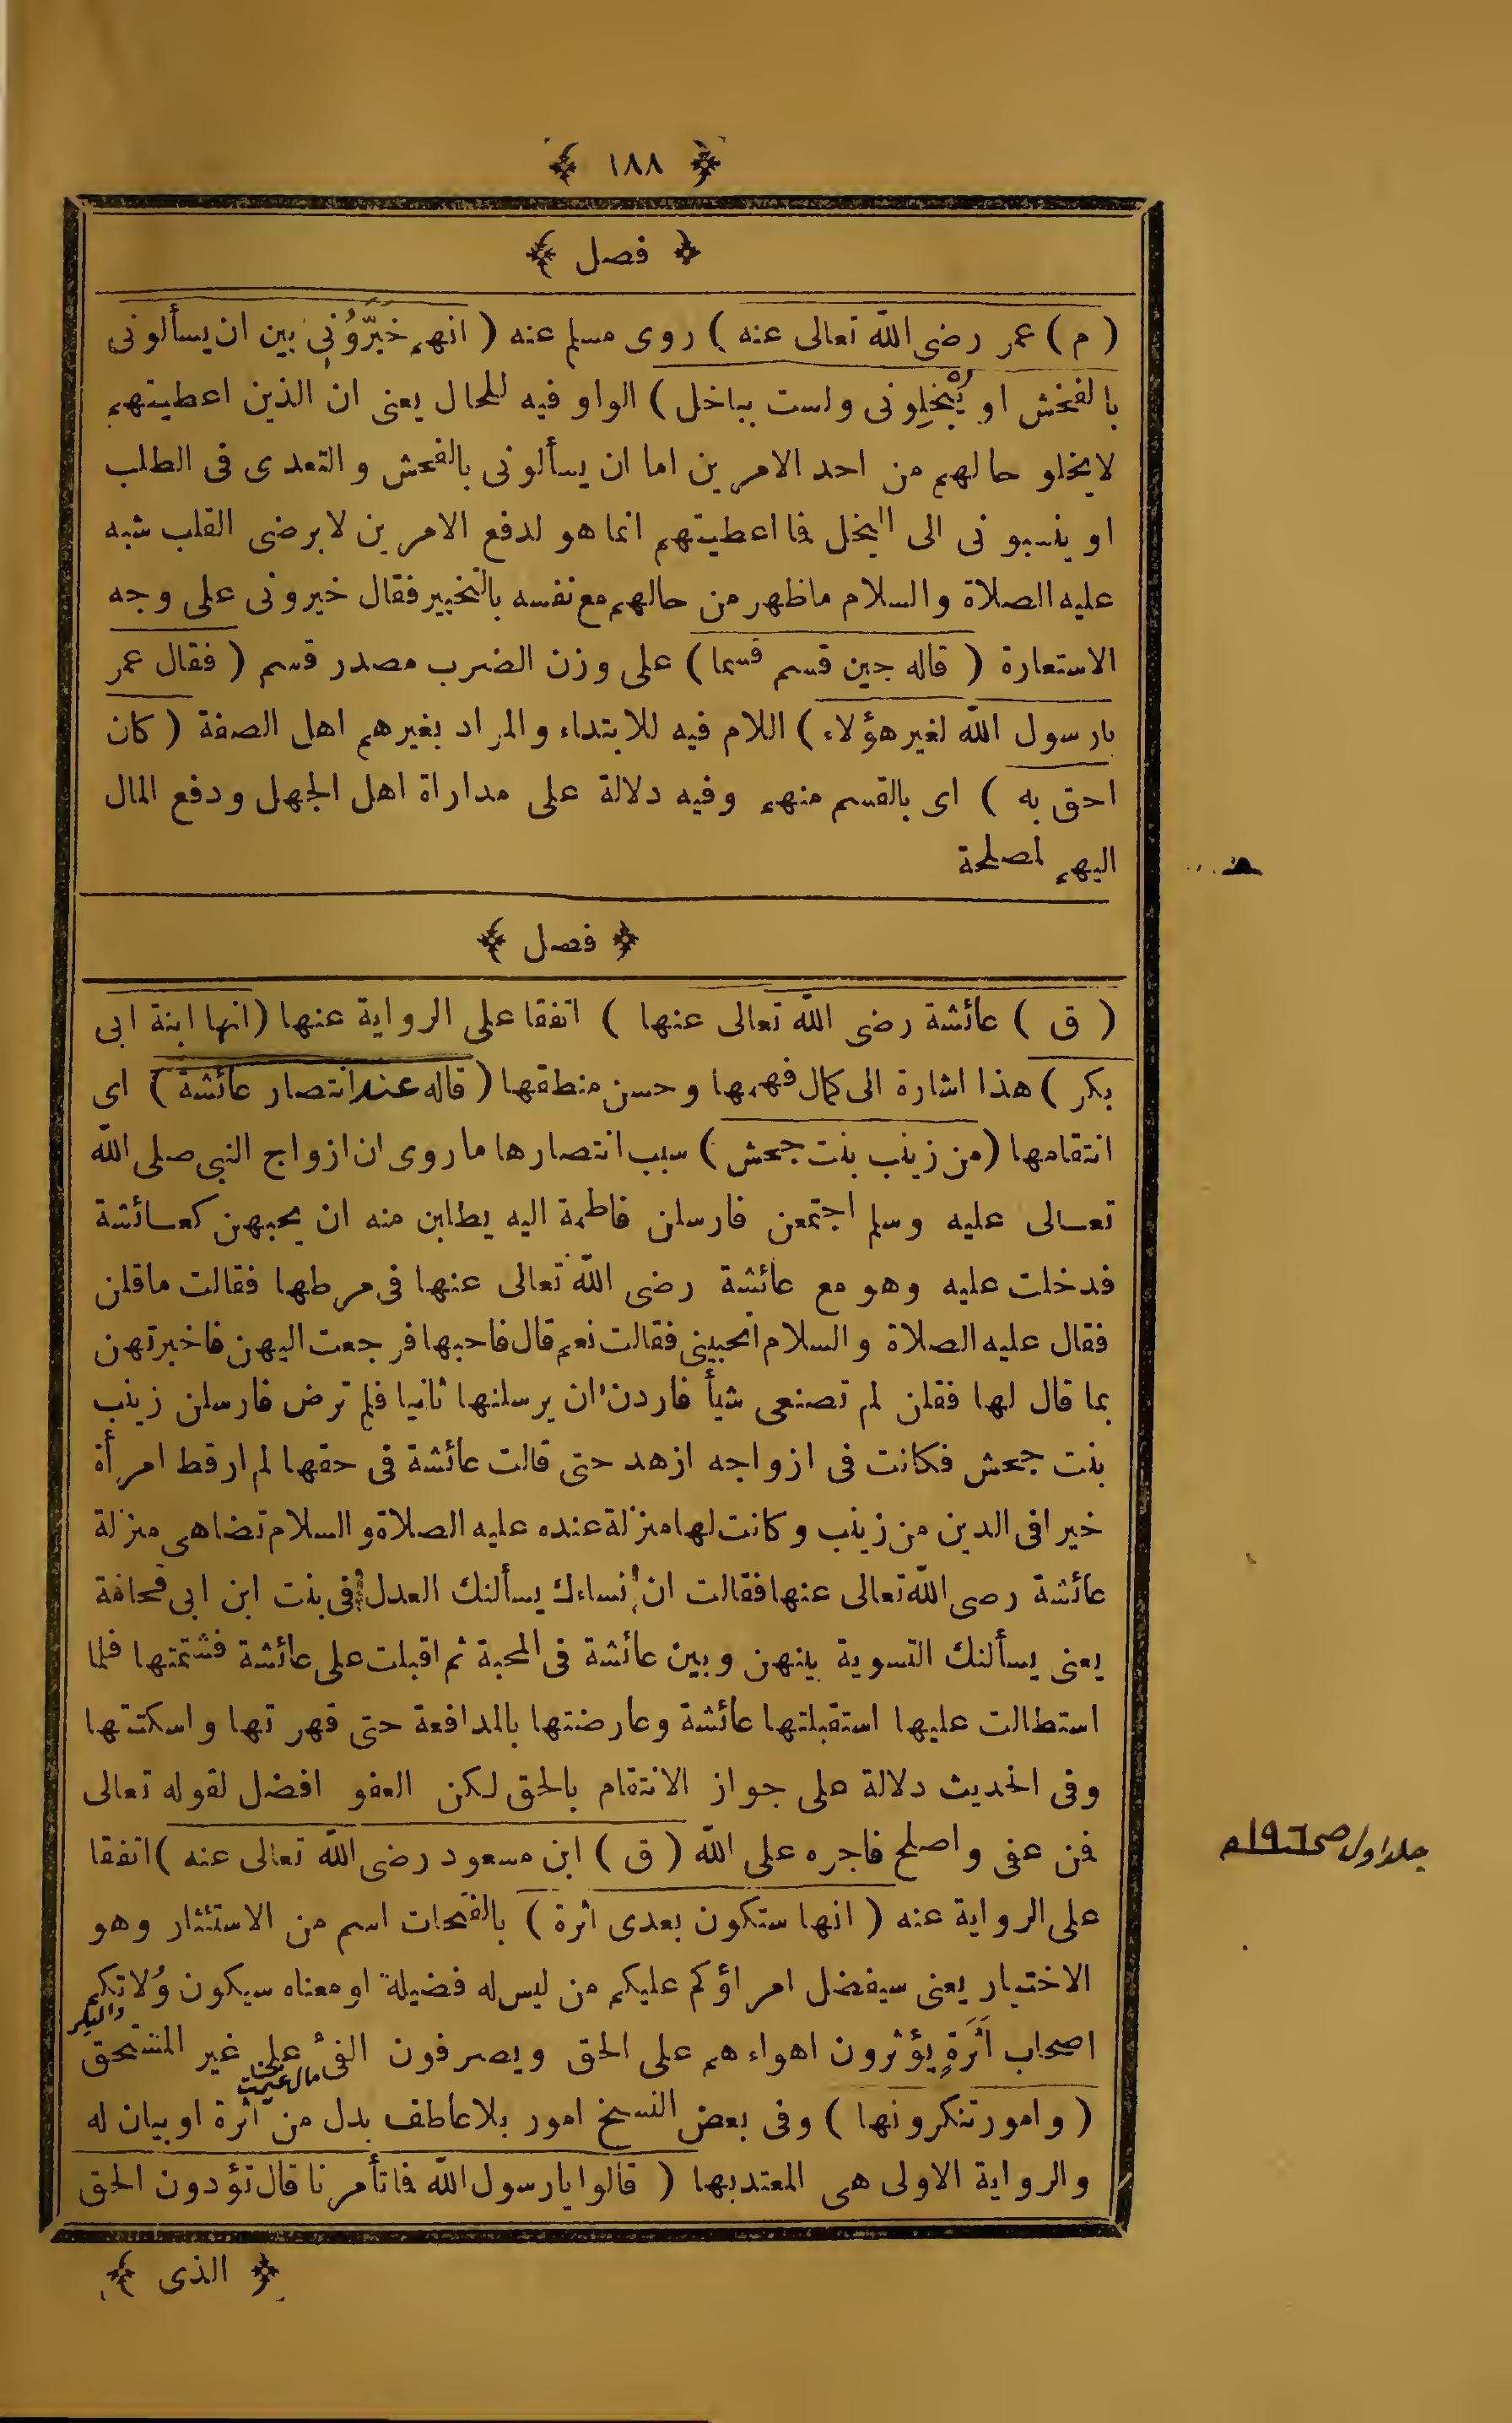 ﴿ ١٨٨ ﴾
﴿ فصل ﴾
( م ) عمر رضى الله تعالى عنه ) روى مسلم عنه ( انهم خَيَّرُونِى بين ان يسألونى
بالفحش او يُبَخِلونى ولست بباخل ) الواو فيه للحال يعنى ان الذين اعطيتهم
لايخلو حالهم من احد الامرين اما ان يسألونى بالفحش والتعدى فى الطلب
او ينسبونى الى البخل فما اعطيتهم انما هو لدفع الامرين لا برضى القلب شبه
عليه الصلاة والسلام ماظهر من حالهم مع نفسه بالتخيير فقال خيرونى على وجه
الاستعارة ( قاله حين قسم قسما ) على وزن الضرب مصدر قسم ( فقال عمر
يارسول الله لغير هؤلاء ) اللام فيه للابتداء والمراد بغيرهم اهل الصفة ( كان
احق به ) اى بالقسم منهم وفيه دلالة على مداراة اهل الجهل ودفع المال
اليهم لمصلحة
﴿ فصل ﴾
( ق ) عائشة رضى الله تعالى عنها ) اتفقا على الرواية عنها ( انها ابنة ابى
بكر ) هذا اشارة الى كمال فهمها وحسن منطقها ( قاله عند انتصار عائشة ) اى
انتقامها ( من زينب بنت جحش ) سبب انتصارها ماروى ان ازواج النبى صلى الله
تعالى عليه وسلم اجتمعن فارسلن فاطمة اليه يطلبن منه ان يحبهن كعائشة
فدخلت عليه وهو مع عائشة رضى الله تعالى عنها فى مرطها فقالت ماقلن
فقال عليه الصلاة والسلام اتحبينى فقالت نعم قال فاحبها فرجعت اليهن فاخبرتهن
بما قال لها فقلن لم تصنعى شيأ فاردن ان يرسلنها ثانيا فلم ترض فارسلن زينب
بنت جحش فكانت فى ازواجه ازهد حتى قالت عائشة فى حقها لم ارقط امرأة
خيرا فى الدين من زينب وكانت لها منزلة عنده عليه الصلاة والسلام تضاهى منزلة
عائشة رضى الله تعالى عنها فقالت ان نساءك يسألنك العدل فى بنت ابن ابى قحافة
يعنى يسألنك التسوية بينهن وبين عائشة فى المحبة ثم اقبلت على عائشة فشتمتها فلما
استطالت عليها استقبلتها عائشة وعارضتها بالمدافعة حتى قهرتها واسكتتها
وفى الحديث دلالة على جواز الانتقام بالحق لكن العفو افضل لقوله تعالى
فمن عفى واصلح فاجره على الله ( ق ) ابن مسعود رضى الله تعالى عنه ) اتفقا
جلد اول ص ١٩٦ م
على الرواية عنه ( انها ستكون بعدى اثرة ) بالفتحات اسم من الاستئثار وهو
الاختيار يعنى سيفضل امراؤكم عليكم من ليس له فضيلة او معناه سيكون وُلاتكم
اصحاب اَثَرَةٍ يؤثرون اهواءهم على الحق ويصرفون الفئ على غير المستحق
( وامور تنكرونها ) وفى بعض النسخ امور بلا عاطف بدل من اثرة او بيان له
والرواية الاولى هى المعتد بها ( قالوا يارسول الله فما تأمرنا قال تؤدون الحق
﴿ الذى ﴾